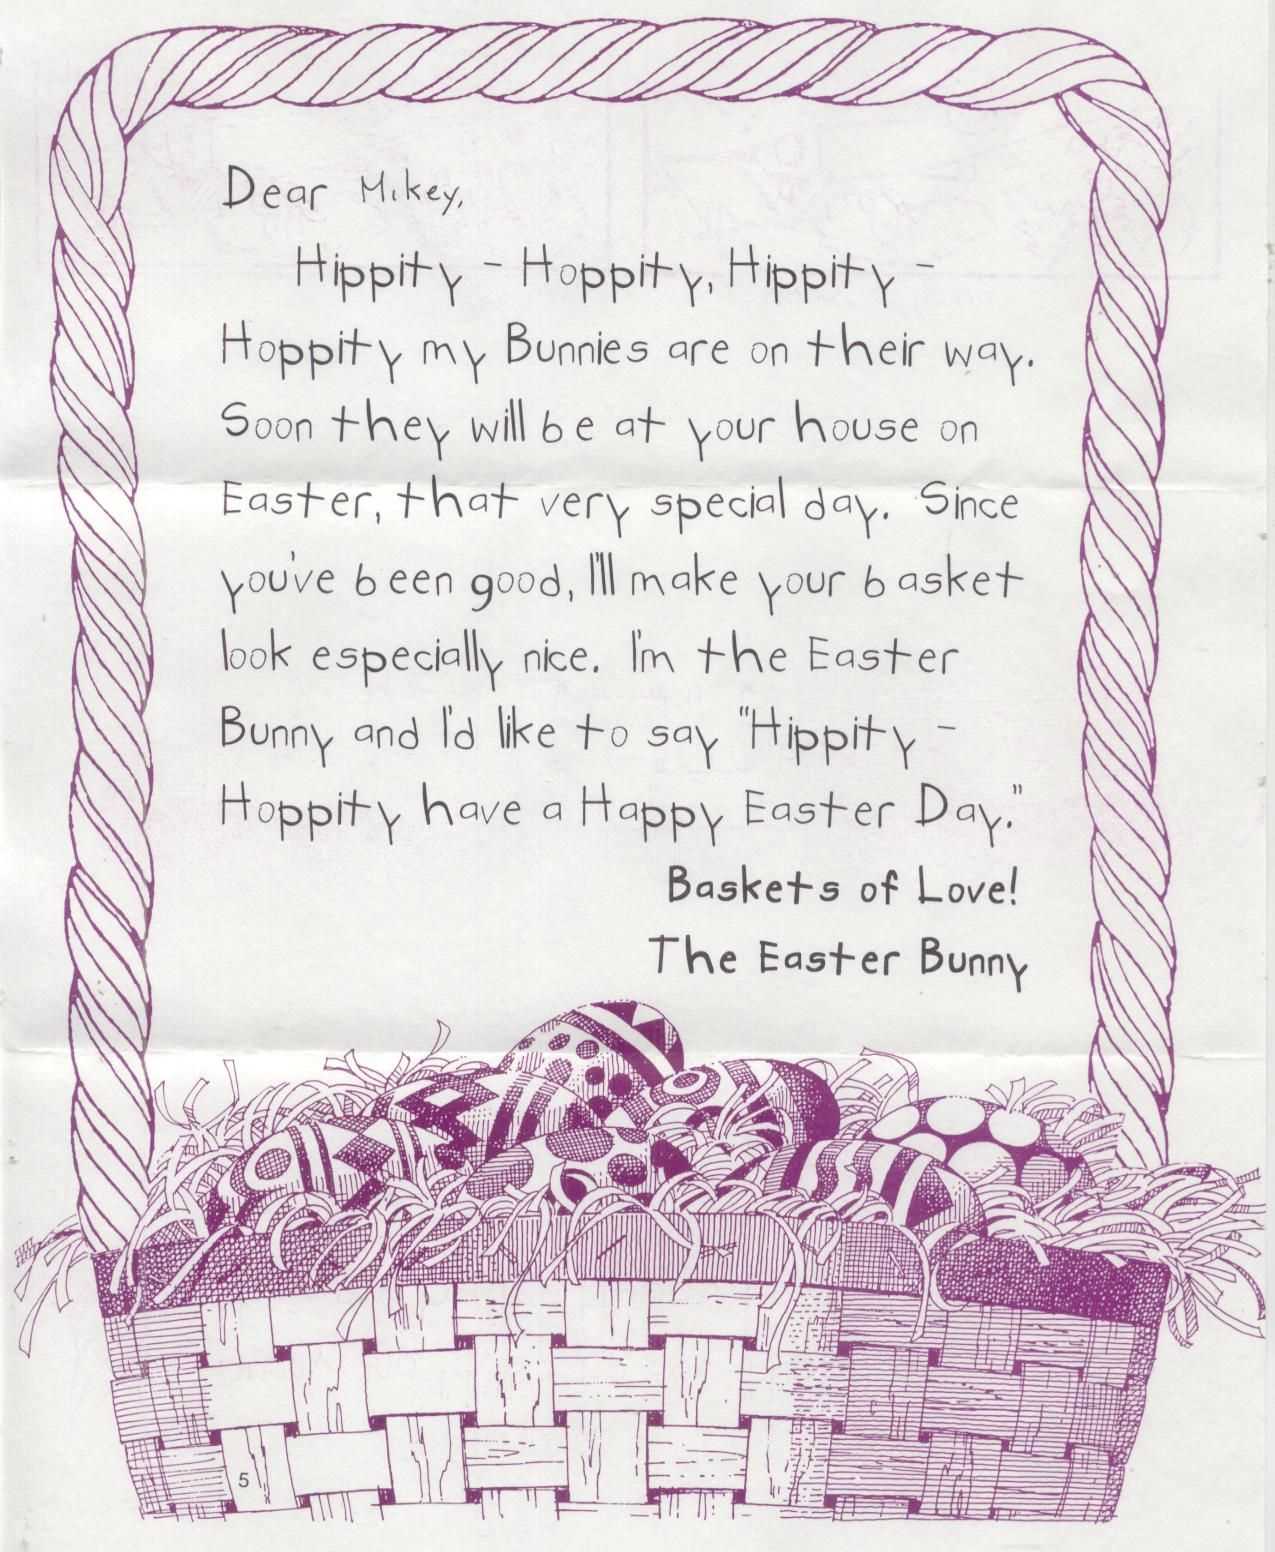 Dear Mikey,
Hippity - Hoppity, Hippity -
Hoppity my Bunnies are on their way.
Soon they will be at your house on
Easter, that very special day. Since
you've been good, I'll make your basket
look especially nice. I'm the Easter
Bunny and I'd like to say "Hippity -
Hoppity have a Happy Easter Day."
Baskets of Love!
The Easter Bunny
5